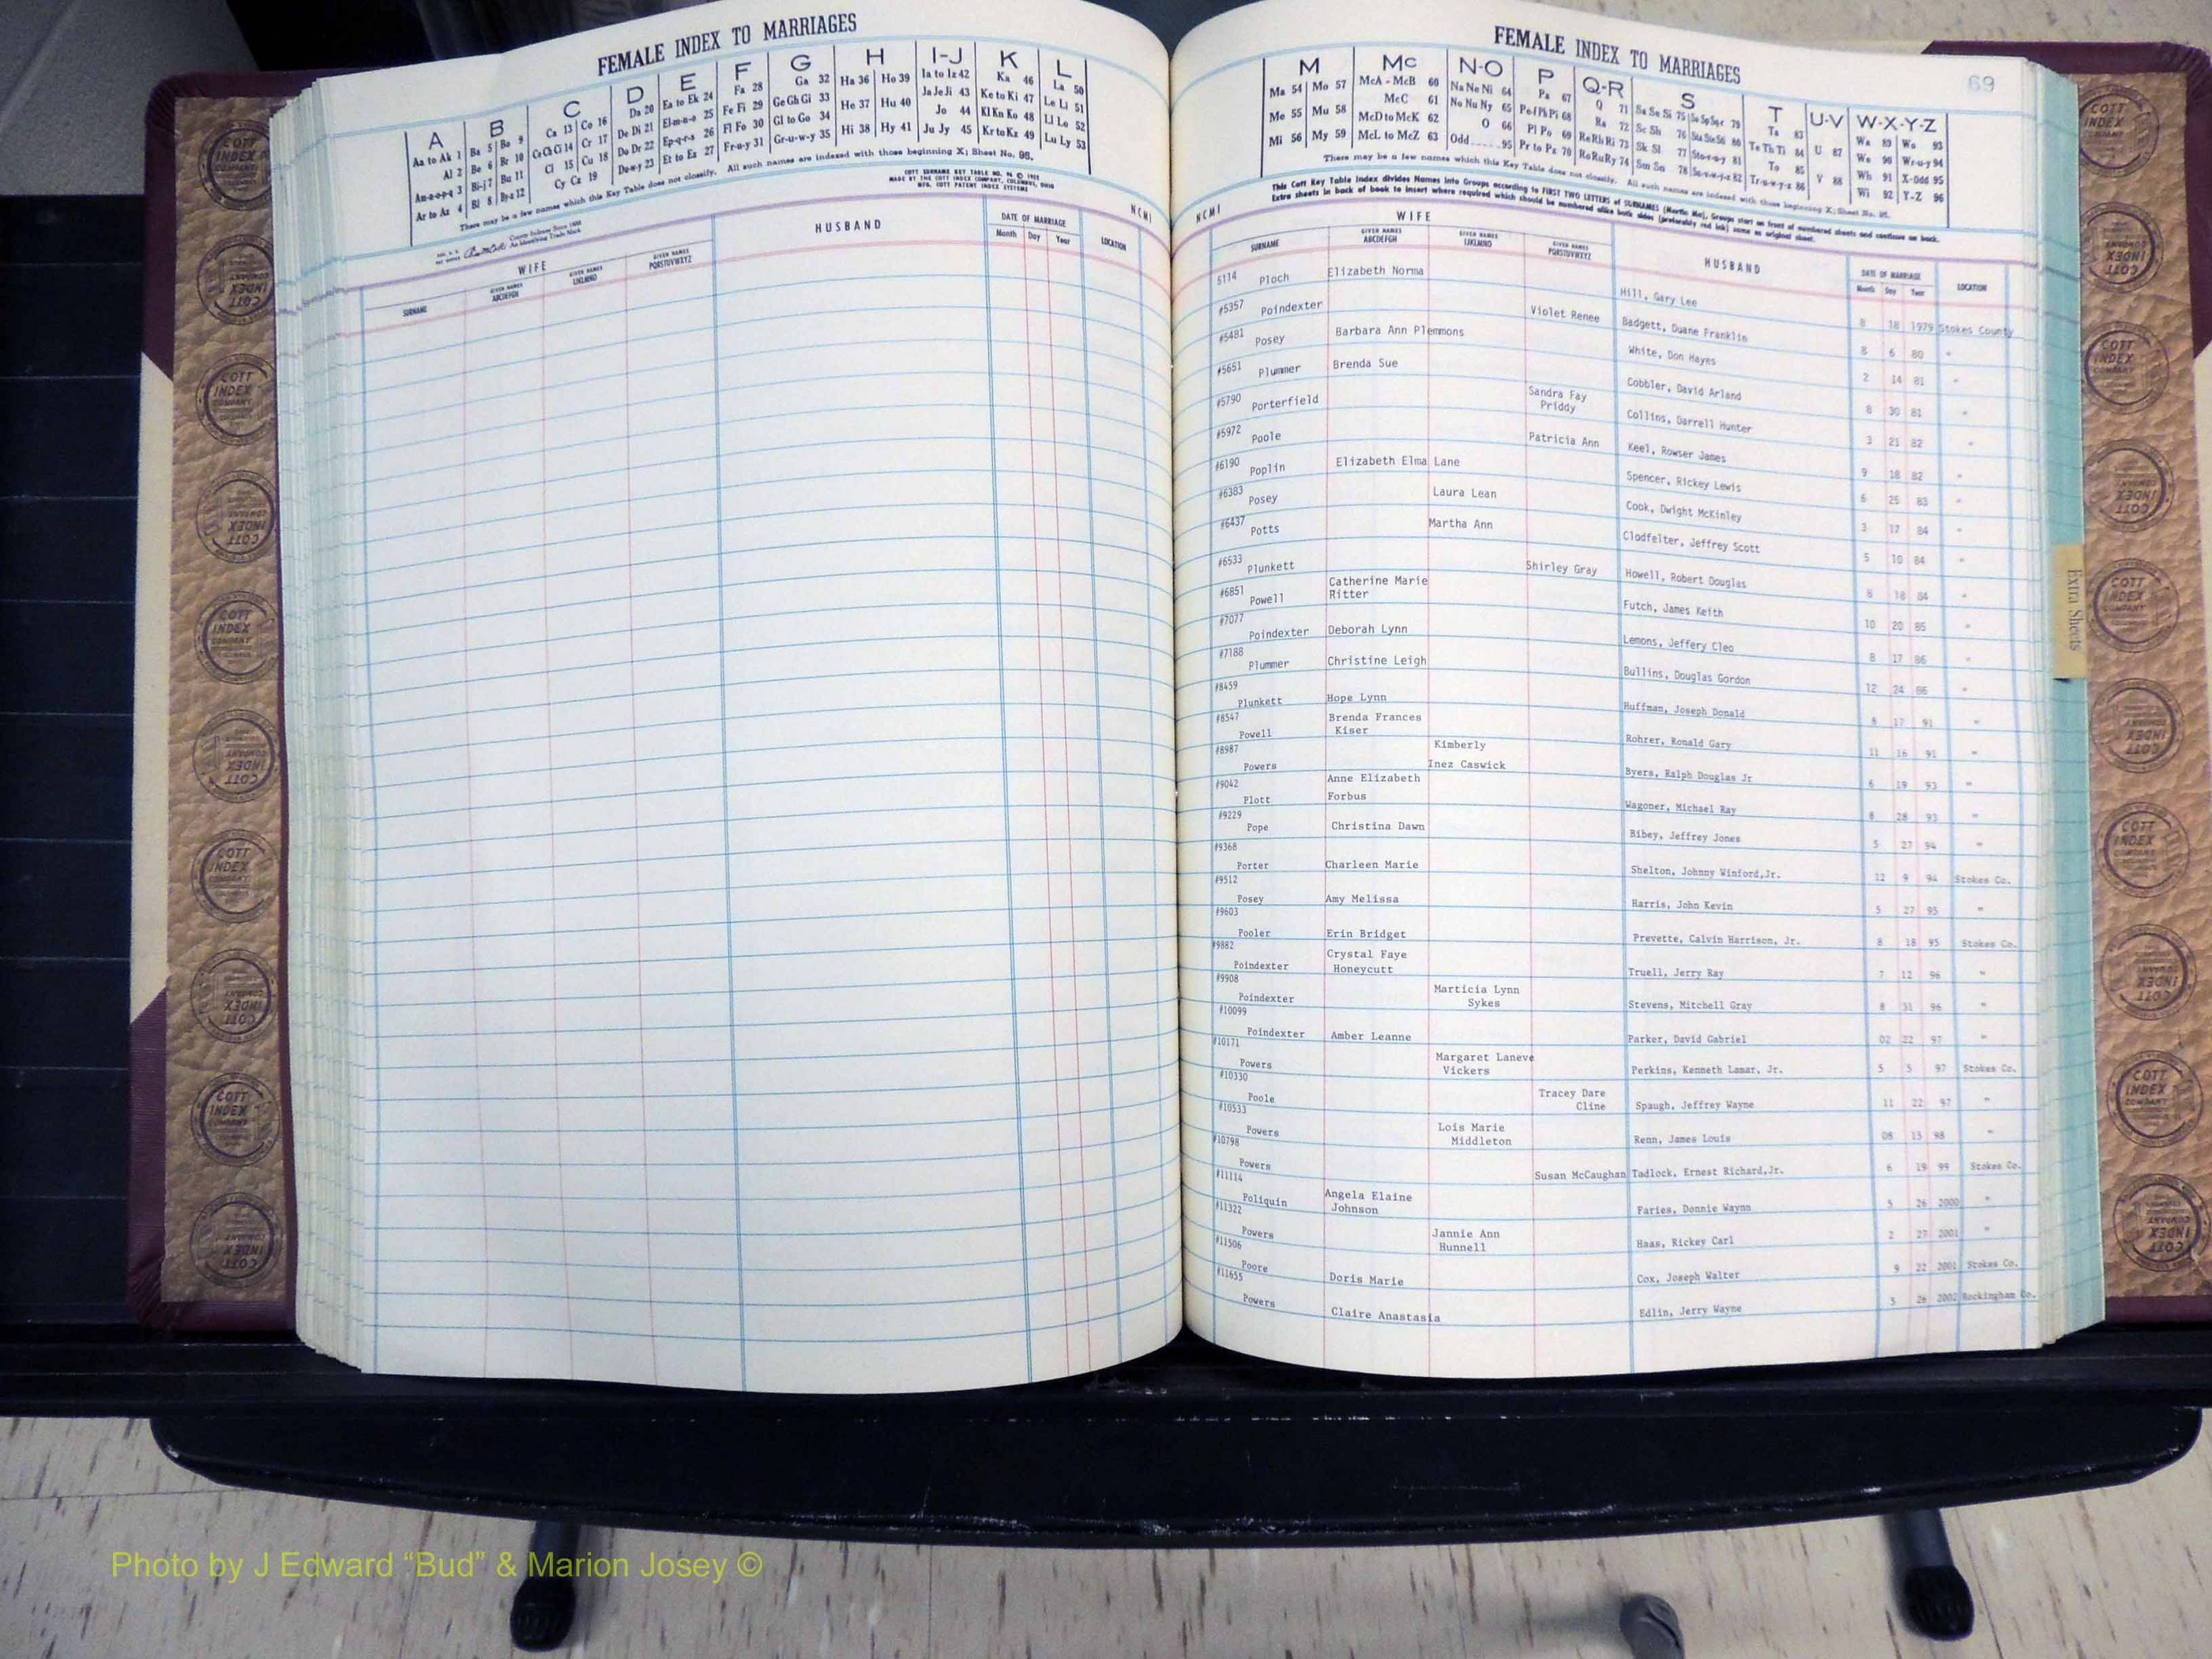 FEMALE INDEX TO MARRIAGES
A B C D E F G H I-J K L
Aa to Ak 1 Ba 5 Bo 9 Ca 13 Co 16 Da 20 Ea to Ek 24 Fa 28 Ga 32 Ha 36 Ho 39 Ia to Iz 42 Ka 46 La 50
Al 2 Be 6 Br 10 Ce Ch Ci 14 Cr 17 De Di 21 El-m-n-o 25 Fe Fi 29 Ge Gh Gi 33 He 37 Hu 40 Ja Je Ji 43 Ke to Ki 47 Le Li 51
Am-n-o-p-q 3 Bi-j 7 Bu 11 Cl 15 Cu 18 Do Dr 22 Ep-q-r-s 26 Fl Fo 30 Gl to Go 34 Hi 38 Hy 41 Jo 44 Kl Kn Ko 48 Ll Lo 52
Ar to Az 4 Bl 8 By-z 12 Cy Cz 19 Du-w-y 23 Et to Ez 27 Fr-u-y 31 Gr-u-w-y 35 Ju Jy 45 Kr to Kz 49 Lu Ly 53
There may be a few names which this Key Table does not classify. All such names are indexed with those beginning X; Sheet No. 95.
COTT SURNAME KEY TABLE NO. 96
MADE BY THE COTT INDEX COMPANY, COLUMBUS, OHIO
MFG. COTT PATENT INDEX SYSTEMS
NCMI
WIFE HUSBAND DATE OF MARRIAGE LOCATION
SURNAME GIVEN NAMES ABCDEFGH GIVEN NAMES IJKLMNO GIVEN NAMES PQRSTUVWXYZ Month Day Year
FEMALE INDEX TO MARRIAGES
69
M Mc N-O P Q-R S T U-V W-X-Y-Z
Ma 54 Mo 57 McA - McB 60 Na Ne Ni 64 Pa 67 Q 71 Sa Se Si 75 Ta 83 Wa 89 Wo 93
Me 55 Mu 58 McC 61 No Nu Ny 65 Pe Pf Ph Pi 68 Ra 72 Sc Sh 76 Te Th Ti 84 U 87 We 90 Wr-u-y 94
Mi 56 My 59 McD to McK 62 O 66 Pl Po 69 Re Rh Ri 73 Sk Sl 77 To 85 V 88 Wh 91 X-Odd 95
McL to McZ 63 Odd 95 Pr to Pz 70 Ro Ru Ry 74 Sm Sn 78 Tr-u-w-y-z 86 Wi 92 Y-Z 96
There may be a few names which this Key Table does not classify. All such names are indexed with those beginning X; Sheet No. 95.
This Cott Key Table Index divides Names into Groups according to FIRST TWO LETTERS of SURNAMES (Martin Ma), Groups start on front of numbered sheets and continue on back.
Extra sheets in back of book to insert where required which should be numbered alike both sides (preferably red ink) same as original sheet.
NCMI
WIFE
SURNAME GIVEN NAMES ABCDEFGH GIVEN NAMES IJKLMNO GIVEN NAMES PQRSTUVWXYZ HUSBAND DATE OF MARRIAGE Month Day Year LOCATION
5114 Ploch Elizabeth Norma Hill, Gary Lee 8 18 1979 Stokes County
#5357 Poindexter Violet Renee Badgett, Duane Franklin 8 6 80 "
#5481 Posey Barbara Ann Plemmons White, Don Hayes 2 14 81 "
#5651 Plummer Brenda Sue Cobbler, David Arland 8 30 81 "
#5790 Porterfield Sandra Fay Priddy Collins, Darrell Hunter 3 21 82 "
#5972 Poole Patricia Ann Keel, Rowser James 9 18 82
#6190 Poplin Elizabeth Elma Lane Spencer, Rickey Lewis 6 25 83 "
#6383 Posey Laura Lean Cook, Dwight McKinley 3 17 84 "
#6437 Potts Martha Ann Clodfelter, Jeffrey Scott 5 10 84 "
#6533 Plunkett Shirley Gray Howell, Robert Douglas 8 18 84 "
#6851 Powell Catherine Marie Ritter Futch, James Keith 10 20 85 "
#7077 Poindexter Deborah Lynn Lemons, Jeffery Cleo 8 17 86 "
#7188 Plummer Christine Leigh Bullins, Douglas Gordon 12 24 86 "
#8459 Plunkett Hope Lynn Huffman, Joseph Donald 8 17 91 "
#8547 Powell Brenda Frances Kiser Rohrer, Ronald Gary 11 16 91 "
#8987 Powers Kimberly Inez Caswick Byers, Ralph Douglas Jr 6 19 93 "
#9042 Plott Anne Elizabeth Forbus Wagoner, Michael Ray 8 28 93 "
#9229 Pope Christina Dawn Bibey, Jeffrey Jones 5 27 94 "
#9368 Porter Charleen Marie Shelton, Johnny Winford,Jr. 12 9 94 Stokes Co.
#9512 Posey Amy Melissa Harris, John Kevin 5 27 95 "
#9603 Pooler Erin Bridget Prevette, Calvin Harrison, Jr. 8 18 95 Stokes Co.
#9882 Poindexter Crystal Faye Honeycutt Truell, Jerry Ray 7 12 96 "
#9908 Poindexter Marticia Lynn Sykes Stevens, Mitchell Gray 8 31 96 "
#10099 Poindexter Amber Leanne Parker, David Gabriel 02 22 97 "
#10171 Powers Margaret Laneve Vickers Perkins, Kenneth Lamar, Jr. 5 5 97 Stokes Co.
#10330 Poole Tracey Dare Cline Spaugh, Jeffrey Wayne 11 22 97 "
#10533 Powers Lois Marie Middleton Renn, James Louis 08 15 98 "
#10798 Powers Susan McCaughan Tadlock, Ernest Richard,Jr. 6 19 99 Stokes Co.
#11114 Poliquin Angela Elaine Johnson Faries, Donnie Waynn 5 26 2000 "
#11322 Powers Jannie Ann Hunnell Haas, Rickey Carl 2 27 2001 "
#11506 Poore Doris Marie Cox, Joseph Walter 9 22 2001 Stokes Co.
#11655 Powers Claire Anastasia Edlin, Jerry Wayne 5 26 2002 Rockingham Co.
Extra Sheets
COTT INDEX COMPANY
Photo by J Edward “Bud” & Marion Josey ©